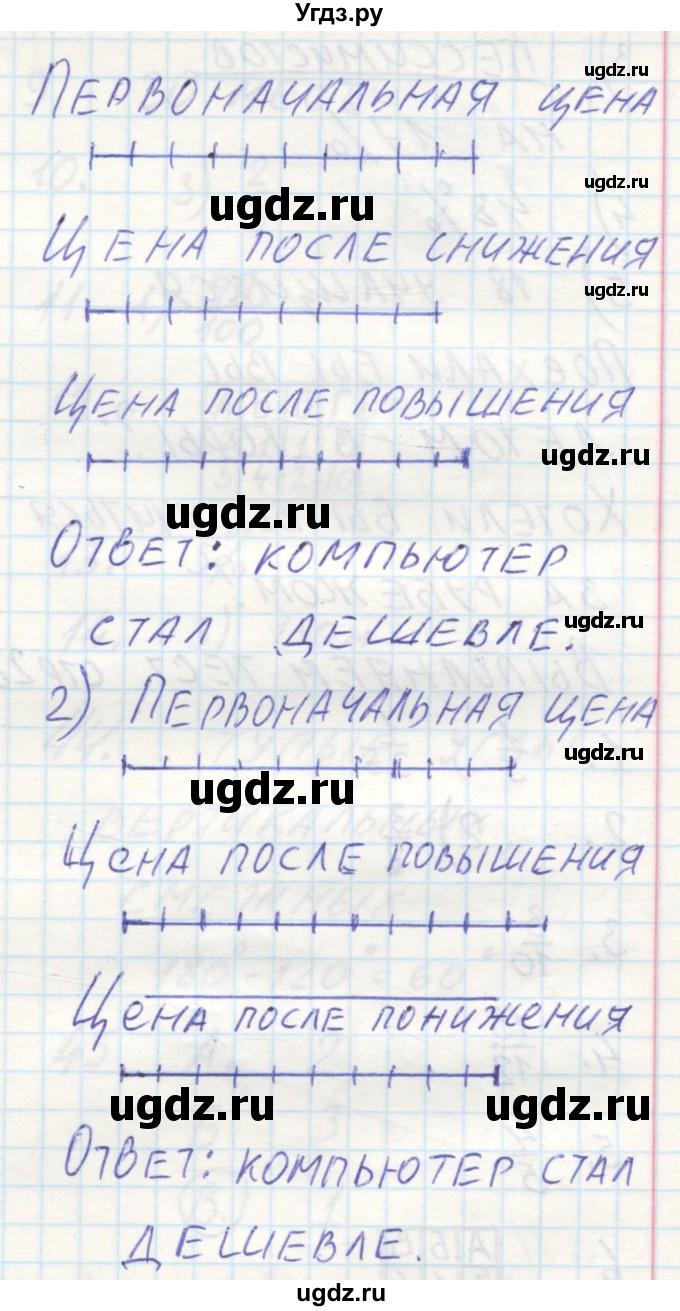 Угдз.ру
ugdz.ru
ПЕРВОНАЧАЛЬНАЯ ЦЕНА
ugdz.ru
ugdz.ru
ЦЕНА ПОСЛЕ СНИЖЕНИЯ
ugdz.ru
ЦЕНА ПОСЛЕ ПОВЫШЕНИЯ
ugdz.ru
ugdz.ru
ОТВЕТ: КОМПЬЮТЕР
СТАЛ ДЕШЕВЛЕ.
ugdz.ru
2) ПЕРВОНАЧАЛЬНАЯ ЦЕНА
ugdz.ru
ugdz.ru
ЦЕНА ПОСЛЕ ПОВЫШЕНИЯ
ЦЕНА ПОСЛЕ ПОНИЖЕНИЯ
ugdz.ru
ugdz.ru
ОТВЕТ: КОМПЬЮТЕР СТАЛ
ДЕШЕВЛЕ.
ugdz.ru